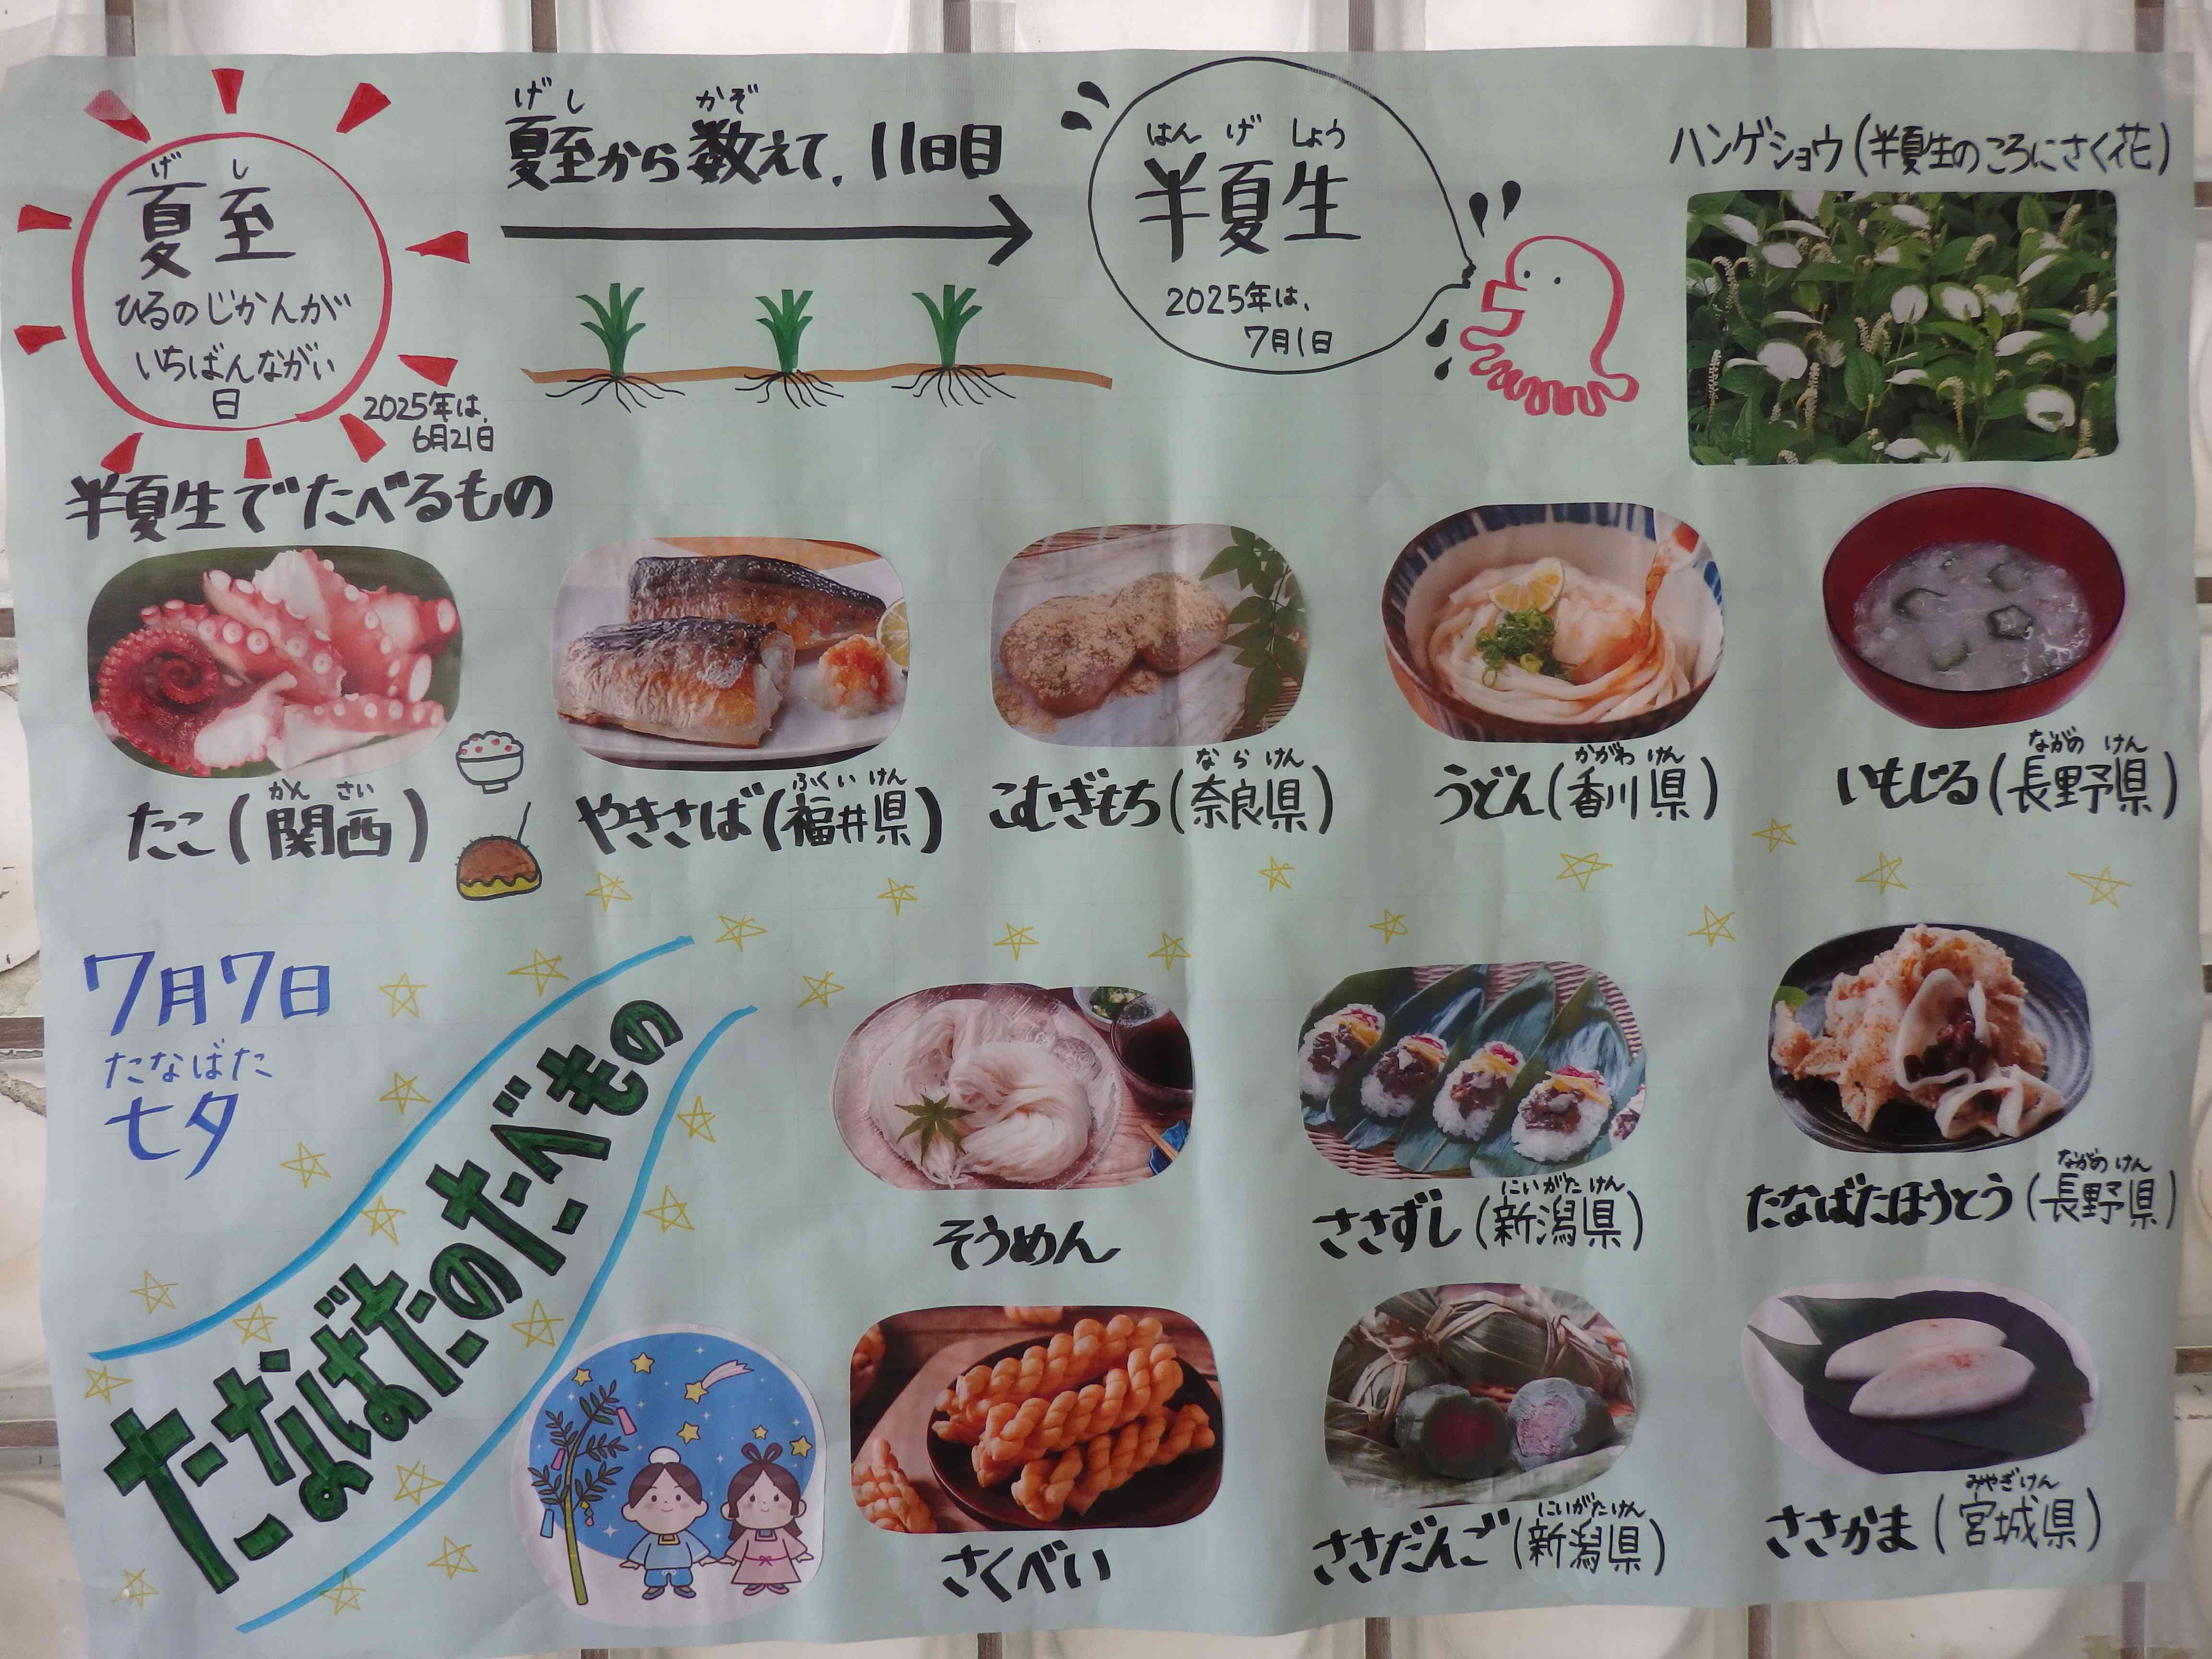 げし
夏至
ひるのじかんが
いちばんながい
日
2025年は、
6月21日
げし かぞ
夏至から数えて、11日目
はん げ しょう
半夏生
2025年は、
7月1日
ハンゲショウ(半夏生のころにさく花)
半夏生でたべるもの
かん さい
たこ(関西)
ふくい けん
やきさば(福井県)
なら けん
こむぎもち(奈良県)
かがわ けん
うどん(香川県)
ながの けん
いもじる(長野県)
7月7日
たなばた
七夕
たなばたのたべもの
そうめん
にいがた けん
ささずし(新潟県)
ながの けん
たなばたほうとう(長野県)
さくべい
にいがたけん
ささだんご(新潟県)
みやぎけん
ささかま(宮城県)